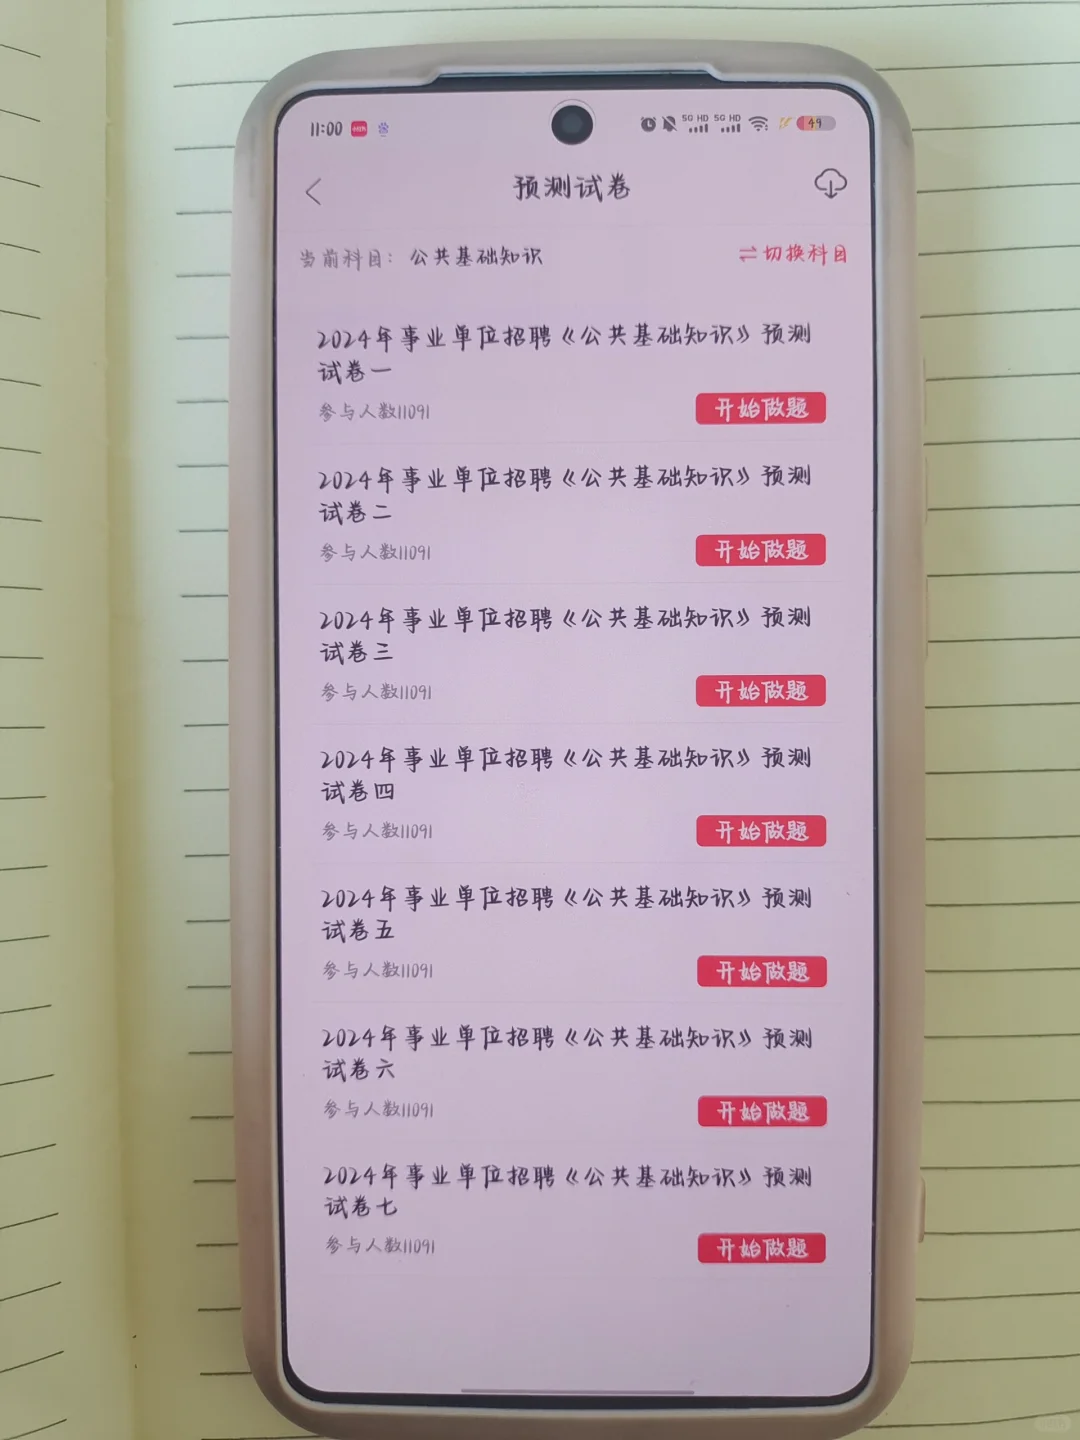 11:00
5G HD 5G HD
49
预测试卷
当前科目: 公共基础知识
切换科目
2024年事业单位招聘《公共基础知识》预测
试卷一
参与人数11091
开始做题
2024年事业单位招聘《公共基础知识》预测
试卷二
参与人数11091
开始做题
2024年事业单位招聘《公共基础知识》预测
试卷三
参与人数11091
开始做题
2024年事业单位招聘《公共基础知识》预测
试卷四
参与人数11091
开始做题
2024年事业单位招聘《公共基础知识》预测
试卷五
参与人数11091
开始做题
2024年事业单位招聘《公共基础知识》预测
试卷六
参与人数11091
开始做题
2024年事业单位招聘《公共基础知识》预测
试卷七
参与人数11091
开始做题